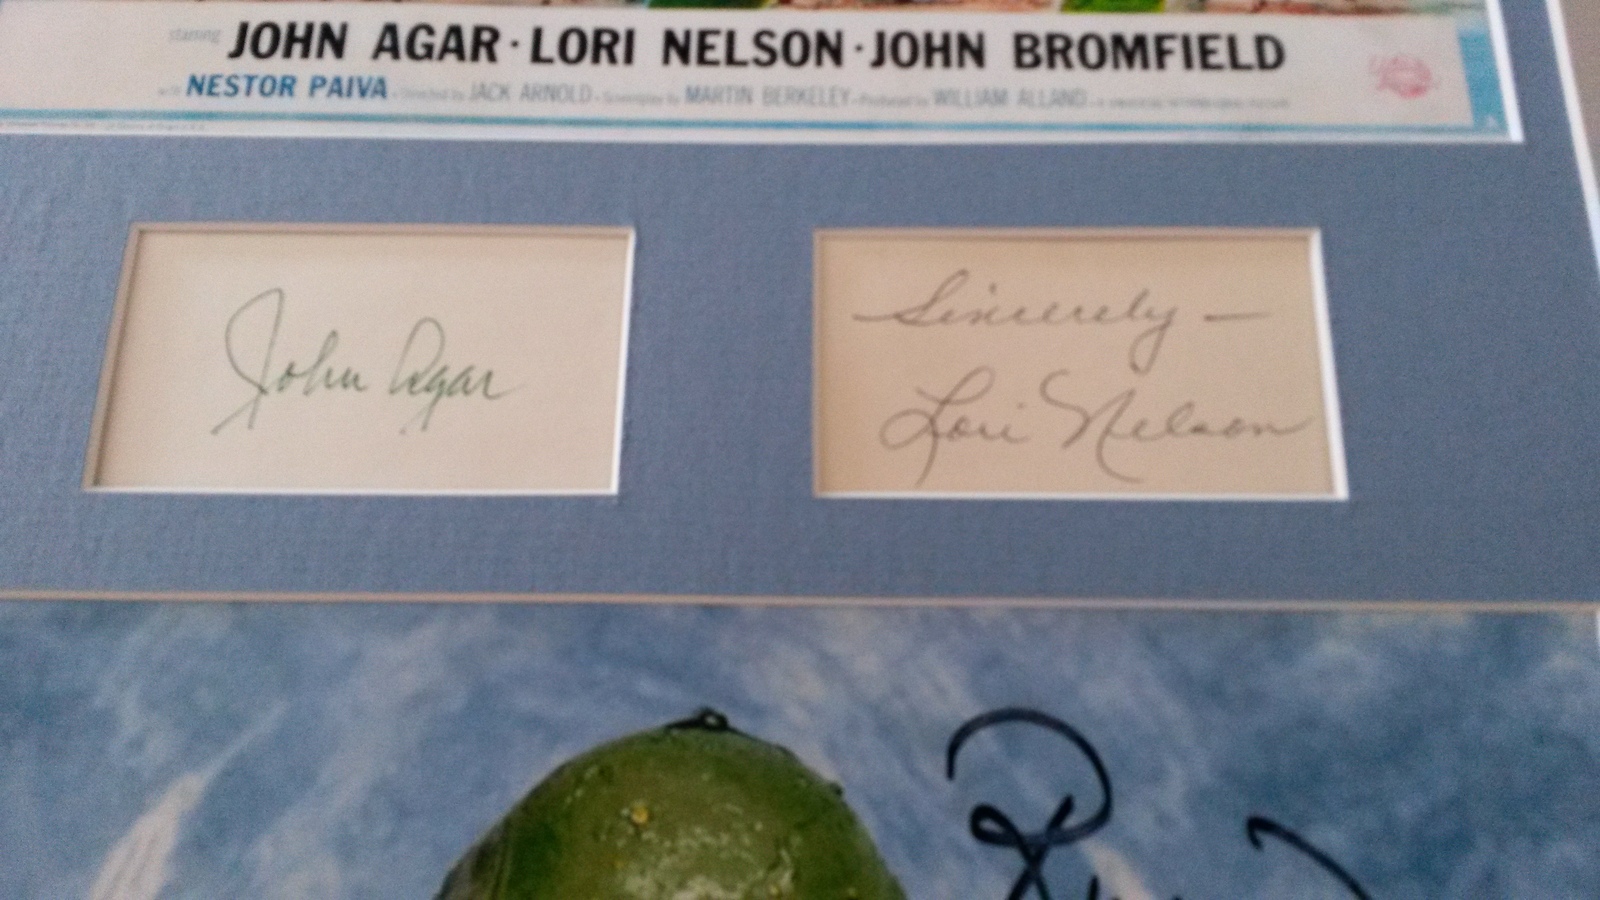 starring JOHN AGAR · LORI NELSON · JOHN BROMFIELD
with NESTOR PAIVA · Directed by JACK ARNOLD · Screenplay by MARTIN BERKELEY · Produced by WILLIAM ALLAND · A UNIVERSAL-INTERNATIONAL PICTURE
John Agar
Sincerely —
Lori Nelson